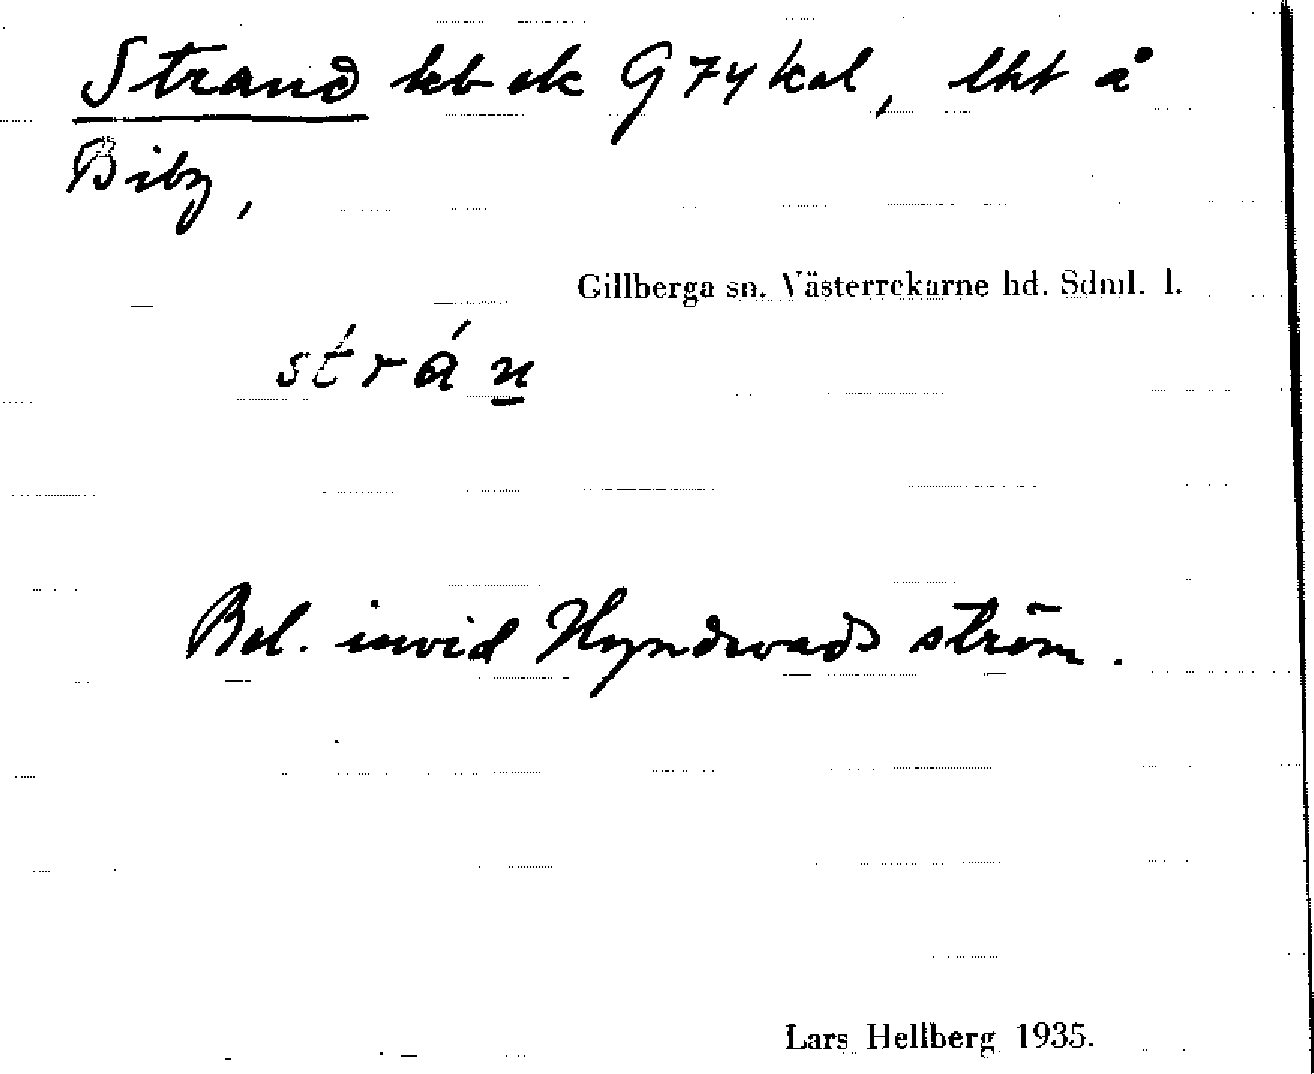 Strand kb ek G74 kd, lht å
Biby,
Gillberga sn. Västerrekarne hd. Sdml. l.
strán
Bel. invid Hyndevads ström.
Lars Hellberg 1935.